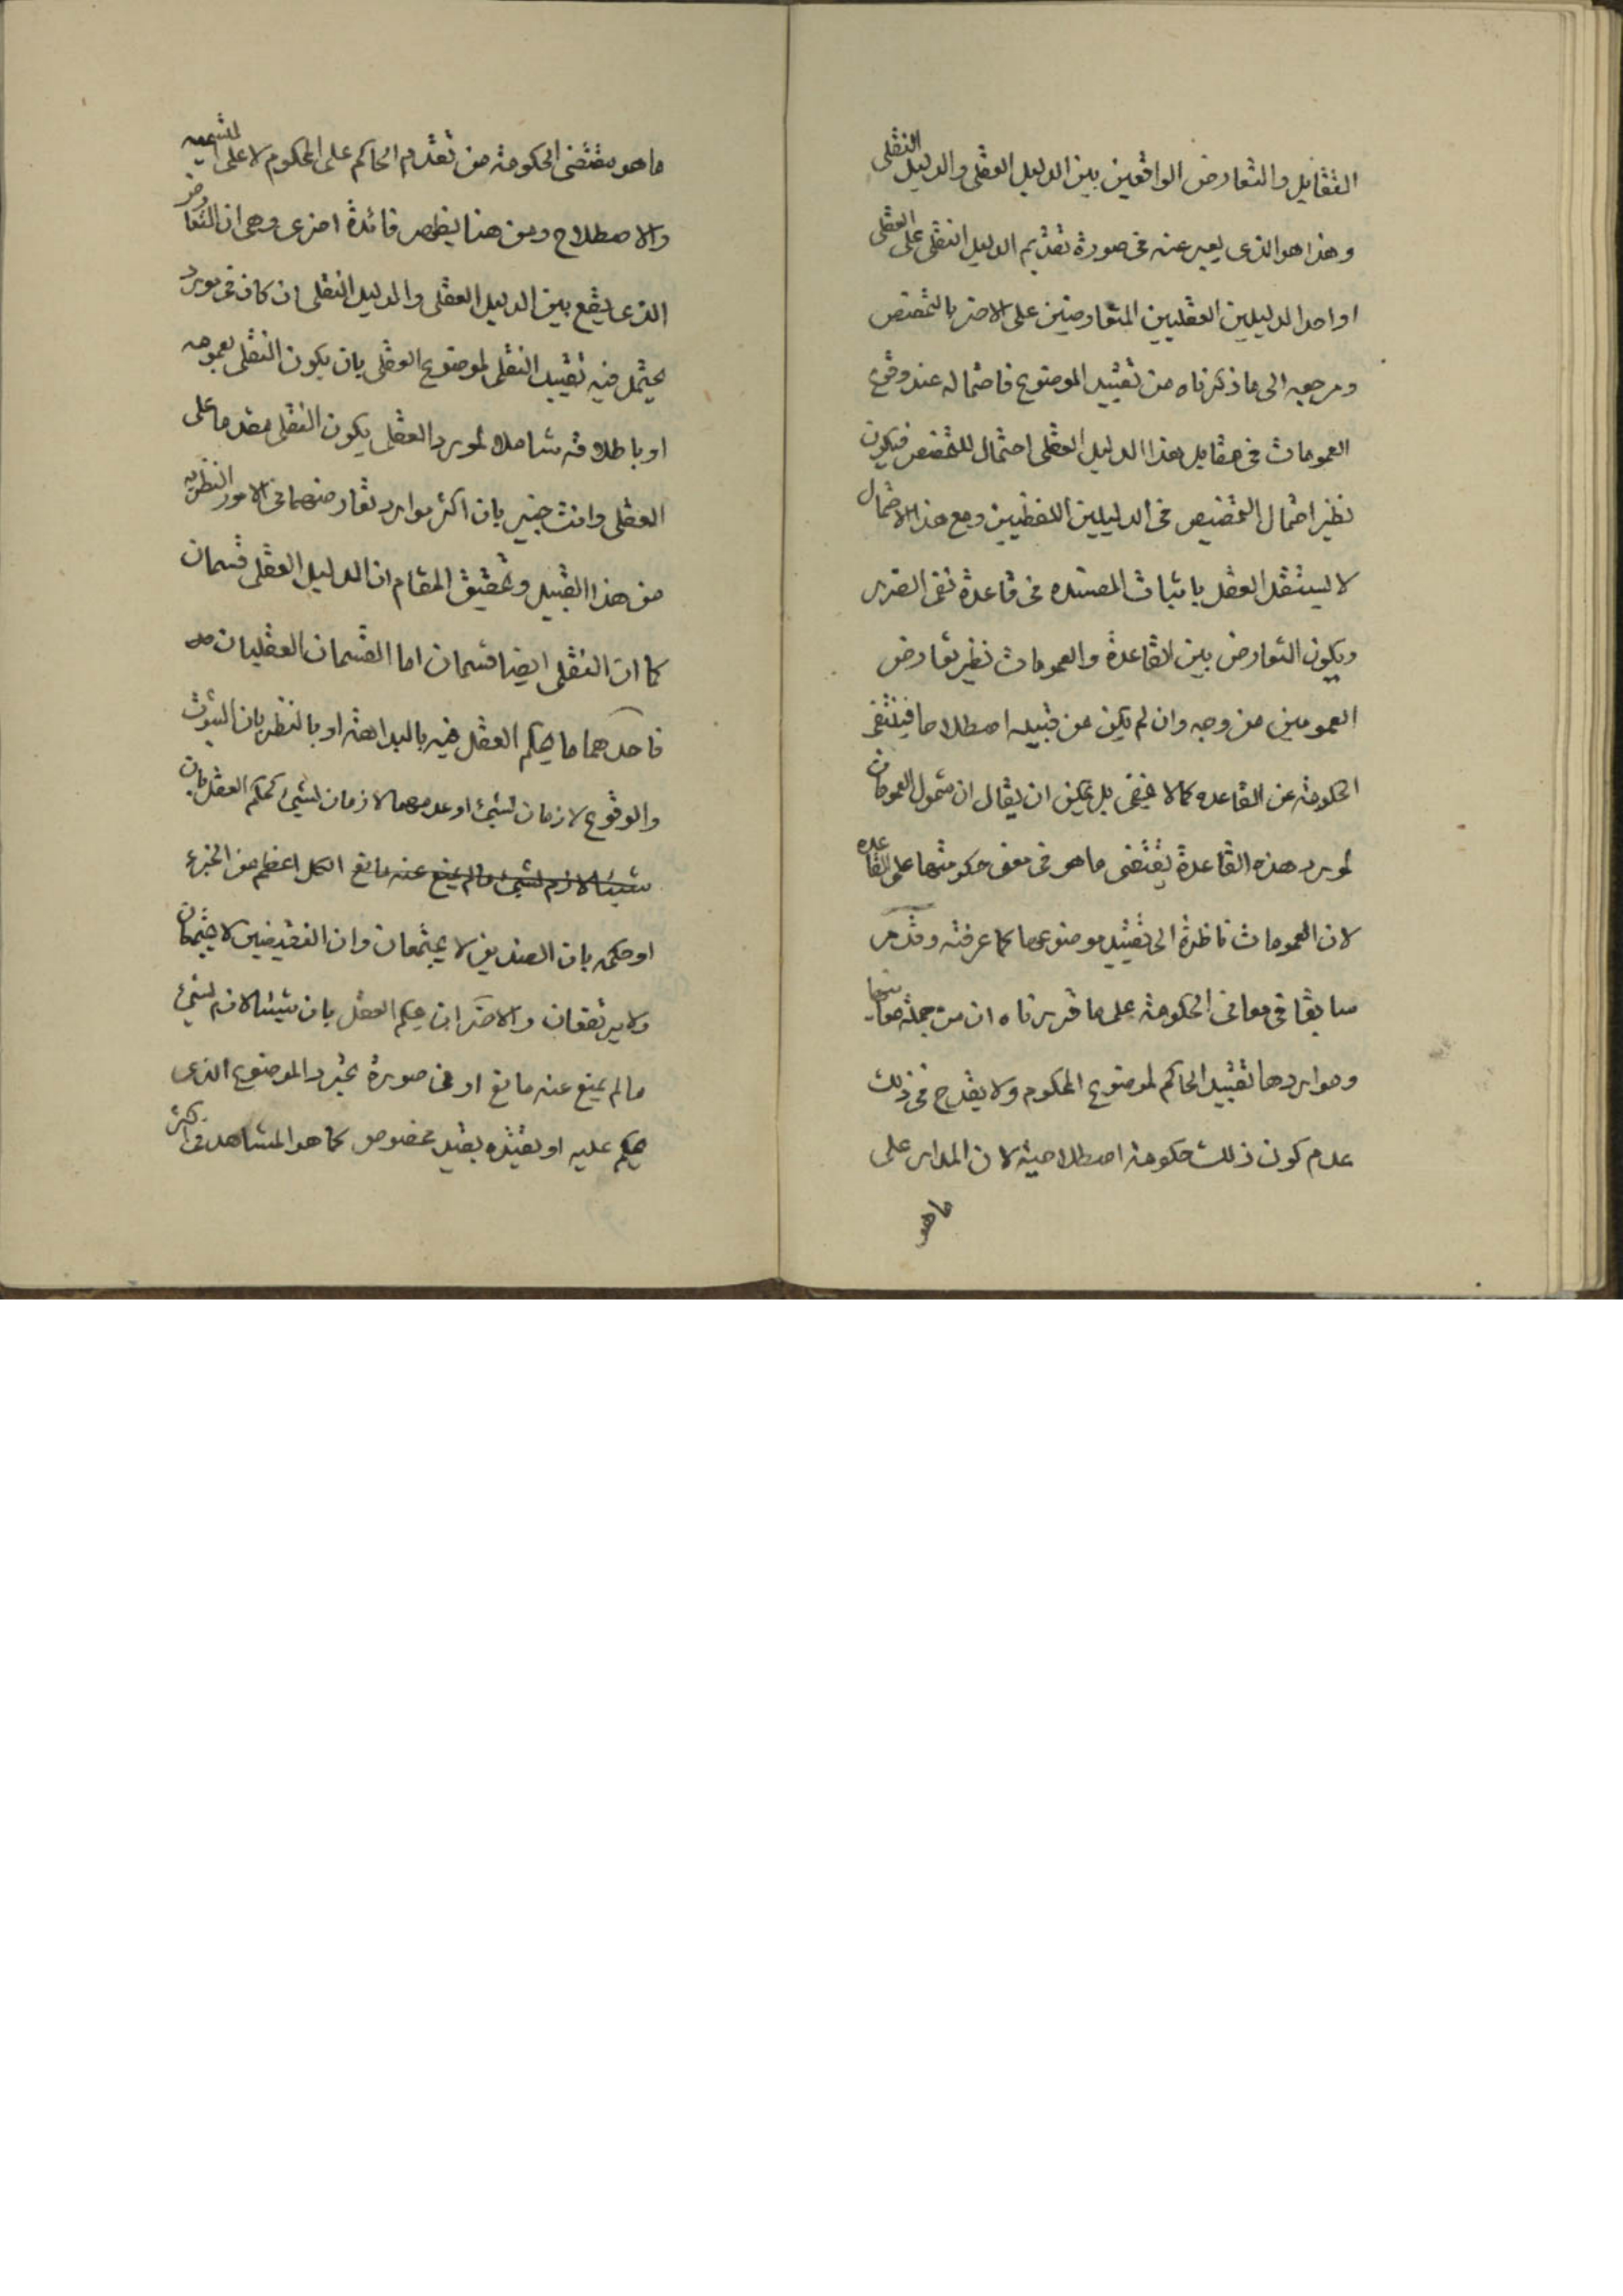 التقابل والتعارض الواقعين بين الدليل العقلى والدليل النقلى
وهذا هو الذى يعبر عنه فى صورة تقديم الدليل النقلى على العقلى
او احد الدليلين العقليين المتعارضين على الاخر بالتخصّص
ومرجعه الى ما ذكرناه من تقييد الموضوع فاحتماله عند وقوع
العمومات فى مقابل هذا الدليل العقلى احتمال للتخصص فيكون
نظير احتمال التخصيص فى الدليلين اللفظيين ومع هذا الاحتمال
لا يستقل العقل باثبات المصنده فى قاعدة نفى الضرر
ويكون التعارض بين القاعدة والعمومات نظير تعارض
العمومين من وجه وان لم يكن من قبيله اصطلاحا فينتفى
الحكومة عن القاعده كما لا يخفى بل يمكن ان يقال ان شمول العمومات
لمورد هذه القاعدة يقتضى ما هو فى معنى حكومتها على القاعده
لان العمومات ناظرة الى تقييد موضوعها كما عرفته وقد مر
سابقا فى معانى الحكومة على ما قررناه ان من جملة معانيها
ومواردها تقييد الحاكم لموضوع المحكوم ولا يقدح فى ذلك
عدم كون ذلك حكومة اصطلاحية لان المدار على
ما هو
ما هو مقتضى الحكومة من تقدم الحاكم على المحكوم لا على التسميه
والاصطلاح ومن هنا يظهر فائدة اخرى وهى ان التعارض
الذى يقع بين الدليل العقلى والدليل النقلى ان كان فى مورد
يحتمل فيه تقييد النقلى لموضوع العقلى بان يكون النقلى بعمومه
او باطلاقه شاملا لمورد العقلى يكون النقلى مقدما على
العقلى وانت خبير بان اكثر موارد تعارضهما فى الامور النظريه
من هذا القبيل وتحقيق المقام ان الدليل العقلى قسمان
كما ان النقلى ايضا قسمان اما القسمان العقليان
فاحدهما ما يحكم العقل فيه بالبداهة او بالنظر بان الثبوت
والوقوع لازمان لشىء او عدمهما لازمان لشىء كحكم العقل بان
شيئا لازم لشىء ما لم يمنع عنه مانع الكل اعظم من الجزء
او حكمه بان الضدين لا يجتمعان وان النقيضين لا يجتمعان
ولا يرتفعان والاخر ان يحكم العقل بان شيئا لازم لشىء
ما لم يمنع عنه مانع او فى صورة تجرد الموضوع الذى
يحكم عليه او تقيّده بقيد مخصوص كما هو المشاهد فى اكثر